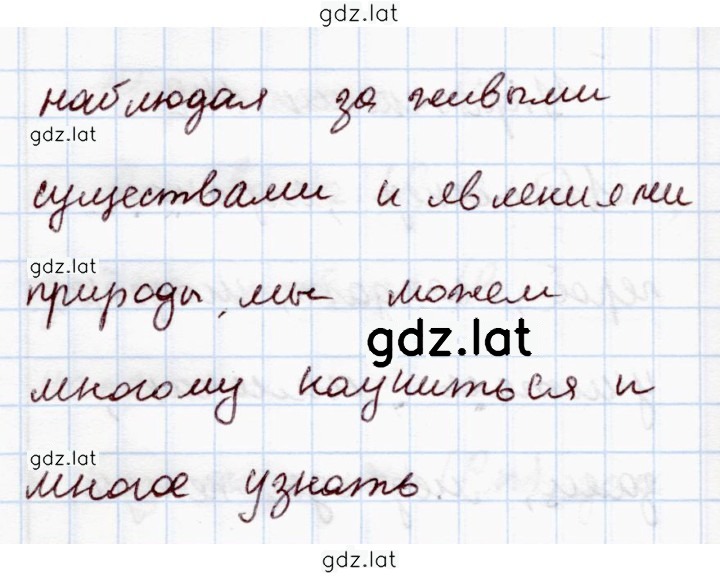 gdz.lat
наблюдая за живыми
gdz.lat
существами и явлениями
gdz.lat
природы, мы можем
gdz.lat
многому научиться и
gdz.lat
многое узнать.
gdz.lat